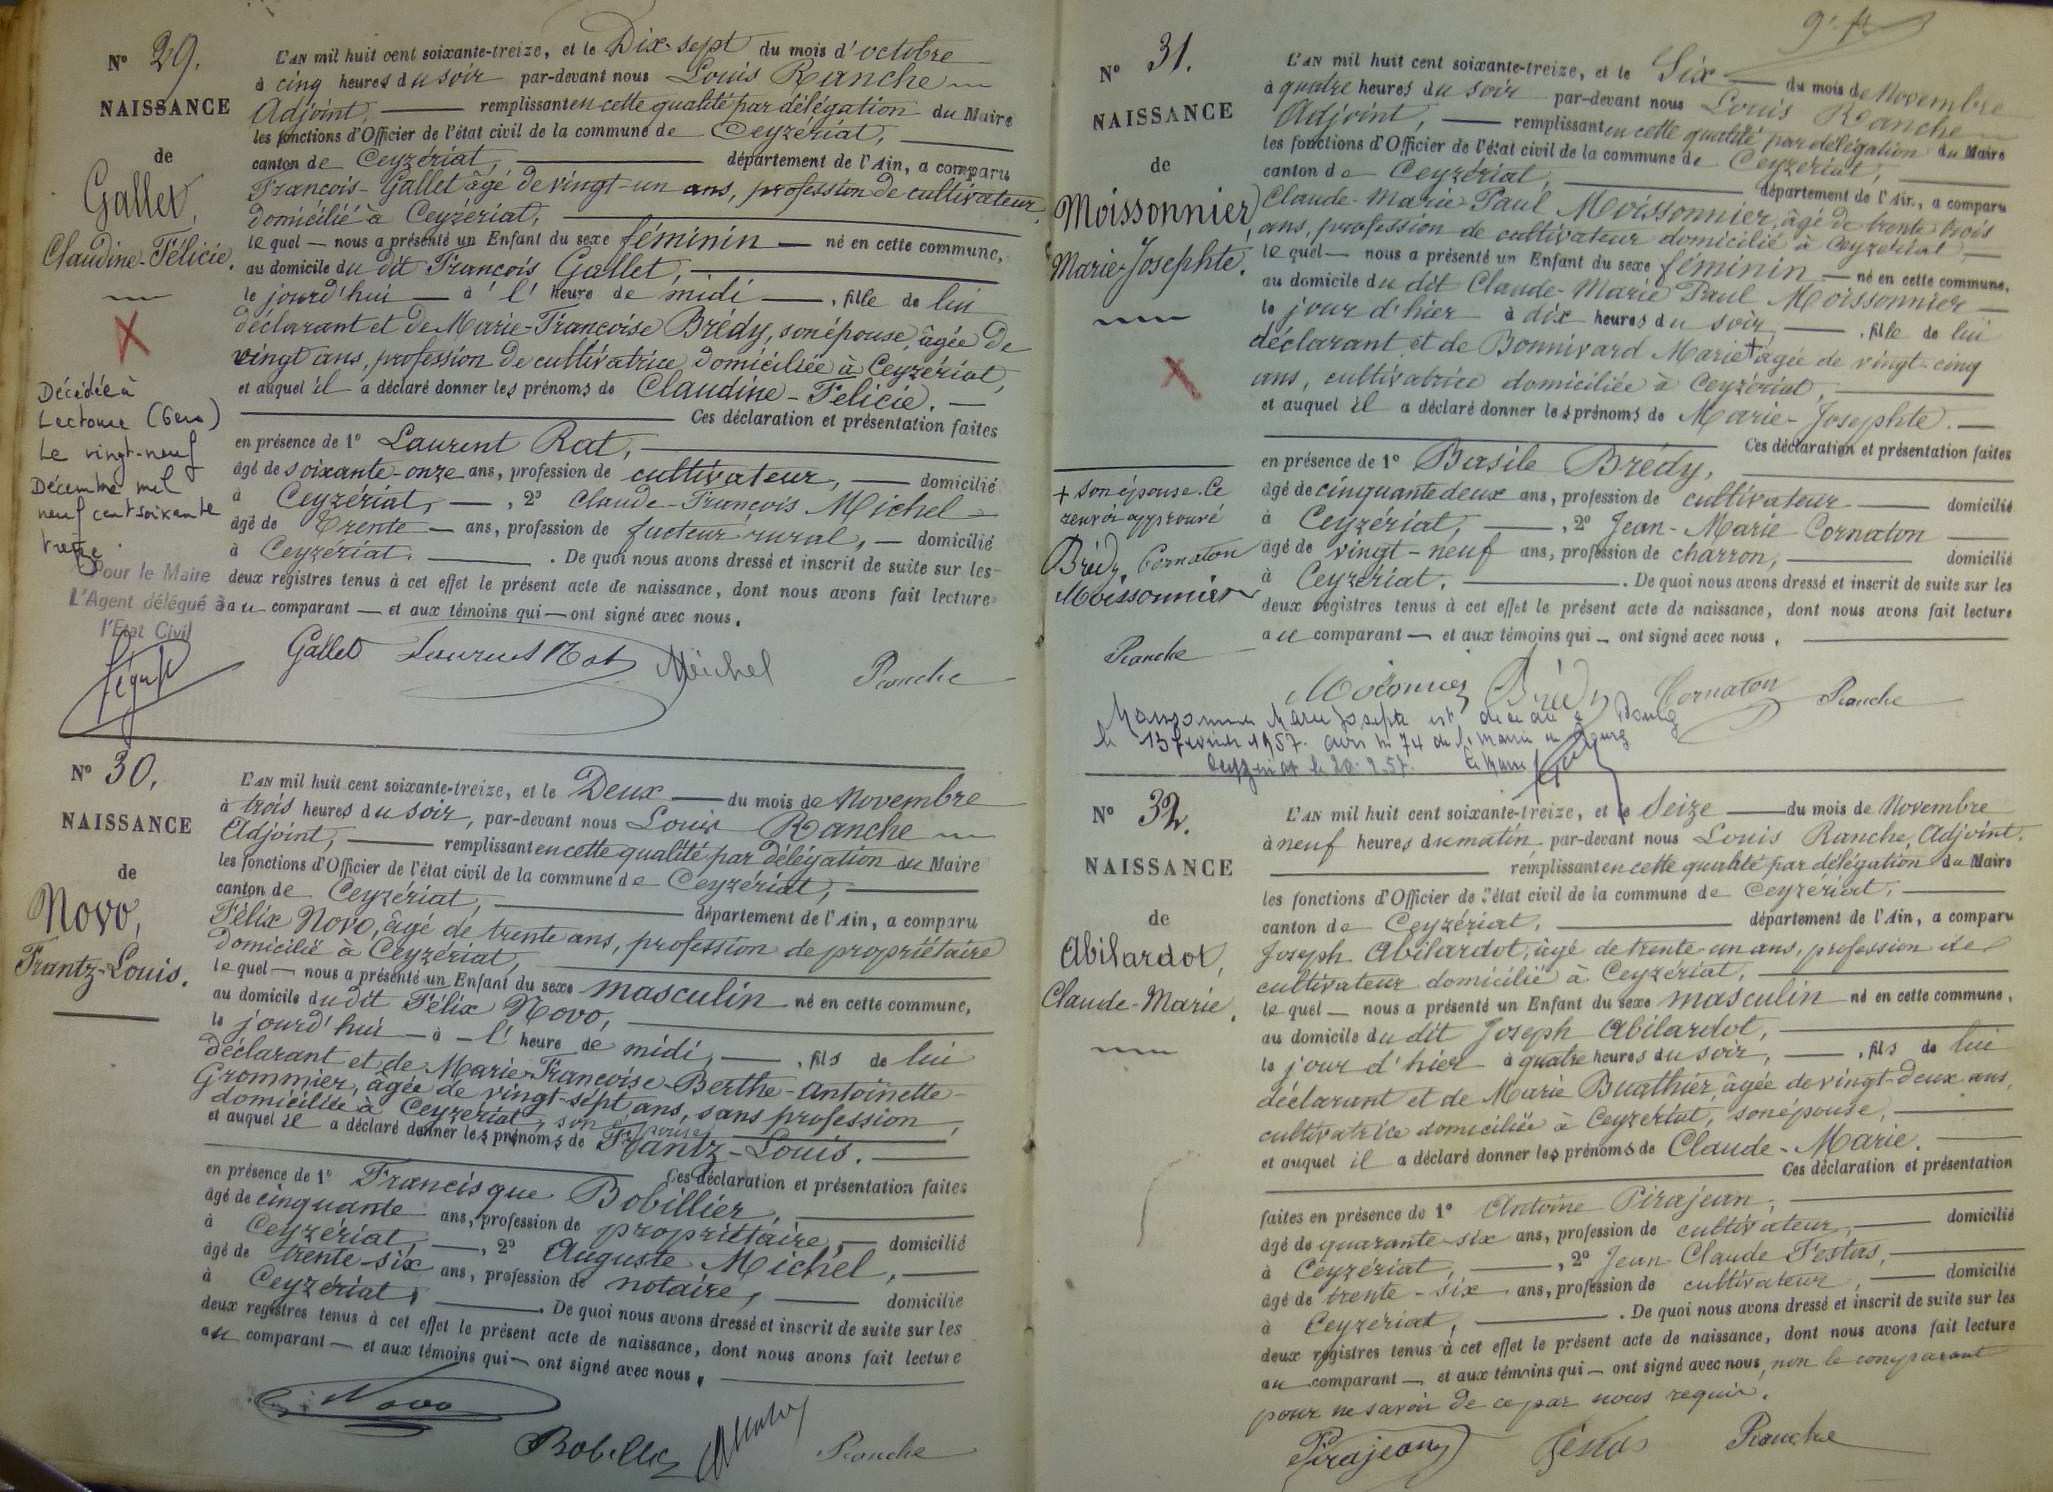 N° 29.
NAISSANCE
de
Gallet,
Claudine-Félicie.
Décédée à
Lectoure (Gers)
le vingt-neuf
Décembre mil
neuf cent soixante
treize.
Pour le Maire
L'Agent délégué à
l'Etat Civil
L'AN mil huit cent soixante-treize, et le Dix-sept du mois d'octobre
à cinq heures du soir par-devant nous Louis Ranche
Adjoint, remplissant en cette qualité par délégation du Maire
les fonctions d'Officier de l'état civil de la commune de Ceyzériat,
canton de Ceyzériat, département de l'Ain, a comparu
François-Gallet âgé de vingt-un ans, profession de cultivateur,
domicilié à Ceyzériat,
lequel nous a présenté un Enfant du sexe féminin né en cette commune,
au domicile du dit François Gallet,
le jourd'hui à l'heure de midi, fille de lui
déclarant et de Marie-Françoise Brédy, son épouse, âgée de
vingt ans, profession de cultivatrice domiciliée à Ceyzériat,
et auquel il a déclaré donner les prénoms de Claudine-Félicie.
Ces déclaration et présentation faites
en présence de 1° Laurent Rat,
âgé de soixante-onze ans, profession de cultivateur, domicilié
à Ceyzériat, 2° Claude-François Michel
âgé de trente ans, profession de facteur rural, domicilié
à Ceyzériat. De quoi nous avons dressé et inscrit de suite sur les
deux registres tenus à cet effet le présent acte de naissance, dont nous avons fait lecture
au comparant et aux témoins qui ont signé avec nous.
Gallet Laurent Rat Michel Ranche
N° 30.
NAISSANCE
de
Novo,
Frantz-Louis.
L'AN mil huit cent soixante-treize, et le Deux du mois de Novembre
à trois heures du soir, par-devant nous Louis Ranche
Adjoint, remplissant en cette qualité par délégation du Maire
les fonctions d'Officier de l'état civil de la commune de Ceyzériat,
canton de Ceyzériat, département de l'Ain, a comparu
Félix Novo, âgé de trente ans, profession de propriétaire
domicilié à Ceyzériat,
lequel nous a présenté un Enfant du sexe masculin né en cette commune,
au domicile du dit Félix Novo,
le jourd'hui à l'heure de midi, fils de lui
déclarant et de Marie-Françoise-Berthe-Antoinette
Grommier, âgée de vingt-sept ans, sans profession,
domiciliée à Ceyzériat, son épouse,
et auquel il a déclaré donner les prénoms de Frantz-Louis.
Ces déclaration et présentation faites
en présence de 1° Francisque Bobillier,
âgé de cinquante ans, profession de propriétaire, domicilié
à Ceyzériat, 2° Auguste Michel,
âgé de trente-six ans, profession de notaire, domicilié
à Ceyzériat. De quoi nous avons dressé et inscrit de suite sur les
deux registres tenus à cet effet le présent acte de naissance, dont nous avons fait lecture
au comparant et aux témoins qui ont signé avec nous.
Novo
Bobillier Ranche
N° 31.
NAISSANCE
de
Moissonnier,
Marie-Josephte.
+ son épouse. Ce
renvoi approuvé
Brédy Cornaton
Moissonnier
Ranche
L'AN mil huit cent soixante-treize, et le Six du mois de Novembre
à quatre heures du soir par-devant nous Louis Ranche
Adjoint, remplissant en cette qualité par délégation du Maire
les fonctions d'Officier de l'état civil de la commune de Ceyzériat,
canton de Ceyzériat, département de l'Ain, a comparu
Claude-Marie Paul Moissonnier, âgé de trente-trois
ans, profession de cultivateur domicilié à Ceyzériat
lequel nous a présenté un Enfant du sexe féminin né en cette commune,
au domicile du dit Claude-Marie Paul Moissonnier
le jour d'hier à dix heures du soir, fille de lui
déclarant et de Bonnivard Marie + âgée de vingt-cinq
ans, cultivatrice domiciliée à Ceyzériat,
et auquel il a déclaré donner les prénoms de Marie-Josephte.
Ces déclaration et présentation faites
en présence de 1° Basile Brédy,
âgé de cinquante deux ans, profession de cultivateur domicilié
à Ceyzériat, 2° Jean-Marie Cornaton
âgé de vingt-neuf ans, profession de charron, domicilié
à Ceyzériat. De quoi nous avons dressé et inscrit de suite sur les
deux registres tenus à cet effet le présent acte de naissance, dont nous avons fait lecture
au comparant et aux témoins qui ont signé avec nous.
Moissonnier Brédy Cornaton Ranche
Moissonnier Marie Josepte est décédée à Bourg
le 13 février 1957. avis n° 74 de la Mairie de Bourg
Ceyzériat le 20.2.57. Le Maire
N° 32.
NAISSANCE
de
Abilardot,
Claude-Marie.
L'AN mil huit cent soixante-treize, et le Seize du mois de Novembre
à neuf heures du matin par-devant nous Louis Ranche, Adjoint.
remplissant en cette qualité par délégation du Maire
les fonctions d'Officier de l'état civil de la commune de Ceyzériat,
canton de Ceyzériat, département de l'Ain, a comparu
Joseph Abilardot, âgé de trente-un ans, profession de
cultivateur domicilié à Ceyzériat,
lequel nous a présenté un Enfant du sexe masculin né en cette commune,
au domicile du dit Joseph Abilardot,
le jour d'hier à quatre heures du soir, fils de lui
déclarant et de Marie Buathier, âgée de vingt-deux ans,
cultivatrice domiciliée à Ceyzériat, son épouse,
et auquel il a déclaré donner les prénoms de Claude-Marie.
Ces déclaration et présentation
faites en présence de 1° Antoine Pirajean,
âgé de quarante-six ans, profession de cultivateur, domicilié
à Ceyzériat, 2° Jean Claude Festas,
âgé de trente-six ans, profession de cultivateur, domicilié
à Ceyzériat, De quoi nous avons dressé et inscrit de suite sur les
deux registres tenus à cet effet le présent acte de naissance, dont nous avons fait lecture
au comparant et aux témoins qui ont signé avec nous, non le comparant
pour ne savoir de ce par nous requis.
Pirajean Festas Ranche